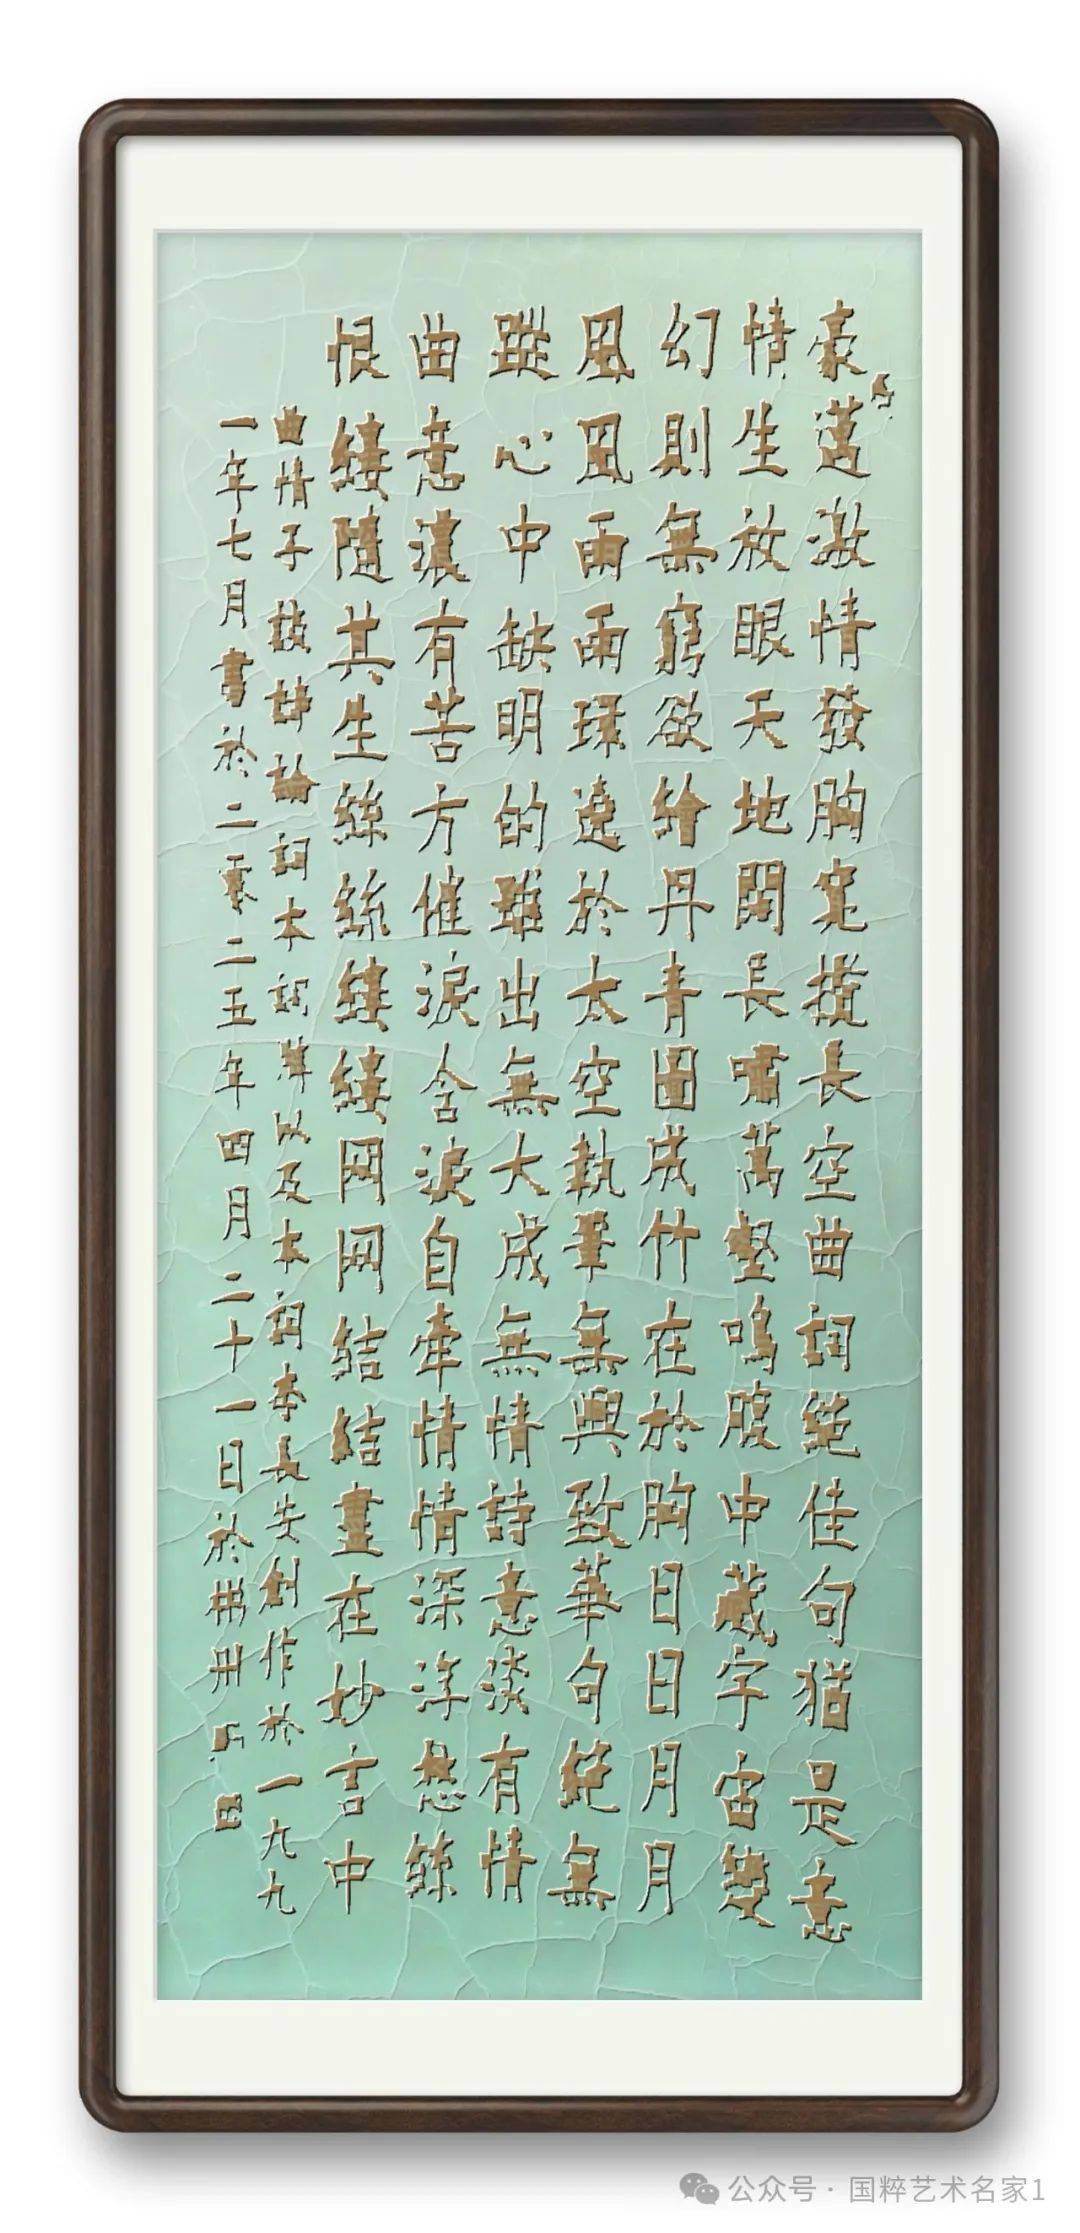 豪邁激情發胸寬攬長空曲詞絕佳句猶是意
情生放眼天地闊長嘯萬壑鳴腹中藏字宙變
幻則無窮欲繪丹青圖成竹在於胸日日月月
風風雨雨環遶於太空執筆無興致華句絕無
蹤心中缺明的難出無大成無情詩意淡有情
曲意濃有苦方催淚含淚自牽情情深浮愁絲
恨縷隨其生絲絲縷縷网网結結畫在妙言中
曲情子鼓詩論詞本詞薄以及本詞李長安創作於一九九
一年七月書於二零二五年四月二十一日於彬州
公众号·国粹艺术名家1